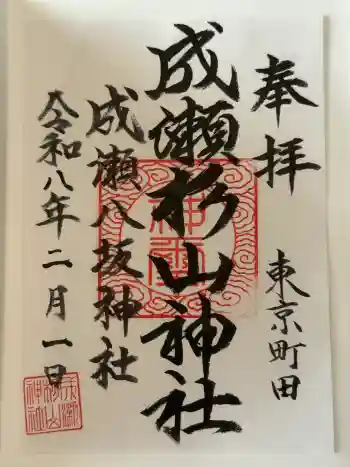 奉拝
東京町田
成瀬杉山神社
成瀬八坂神社
令和八年二月一日